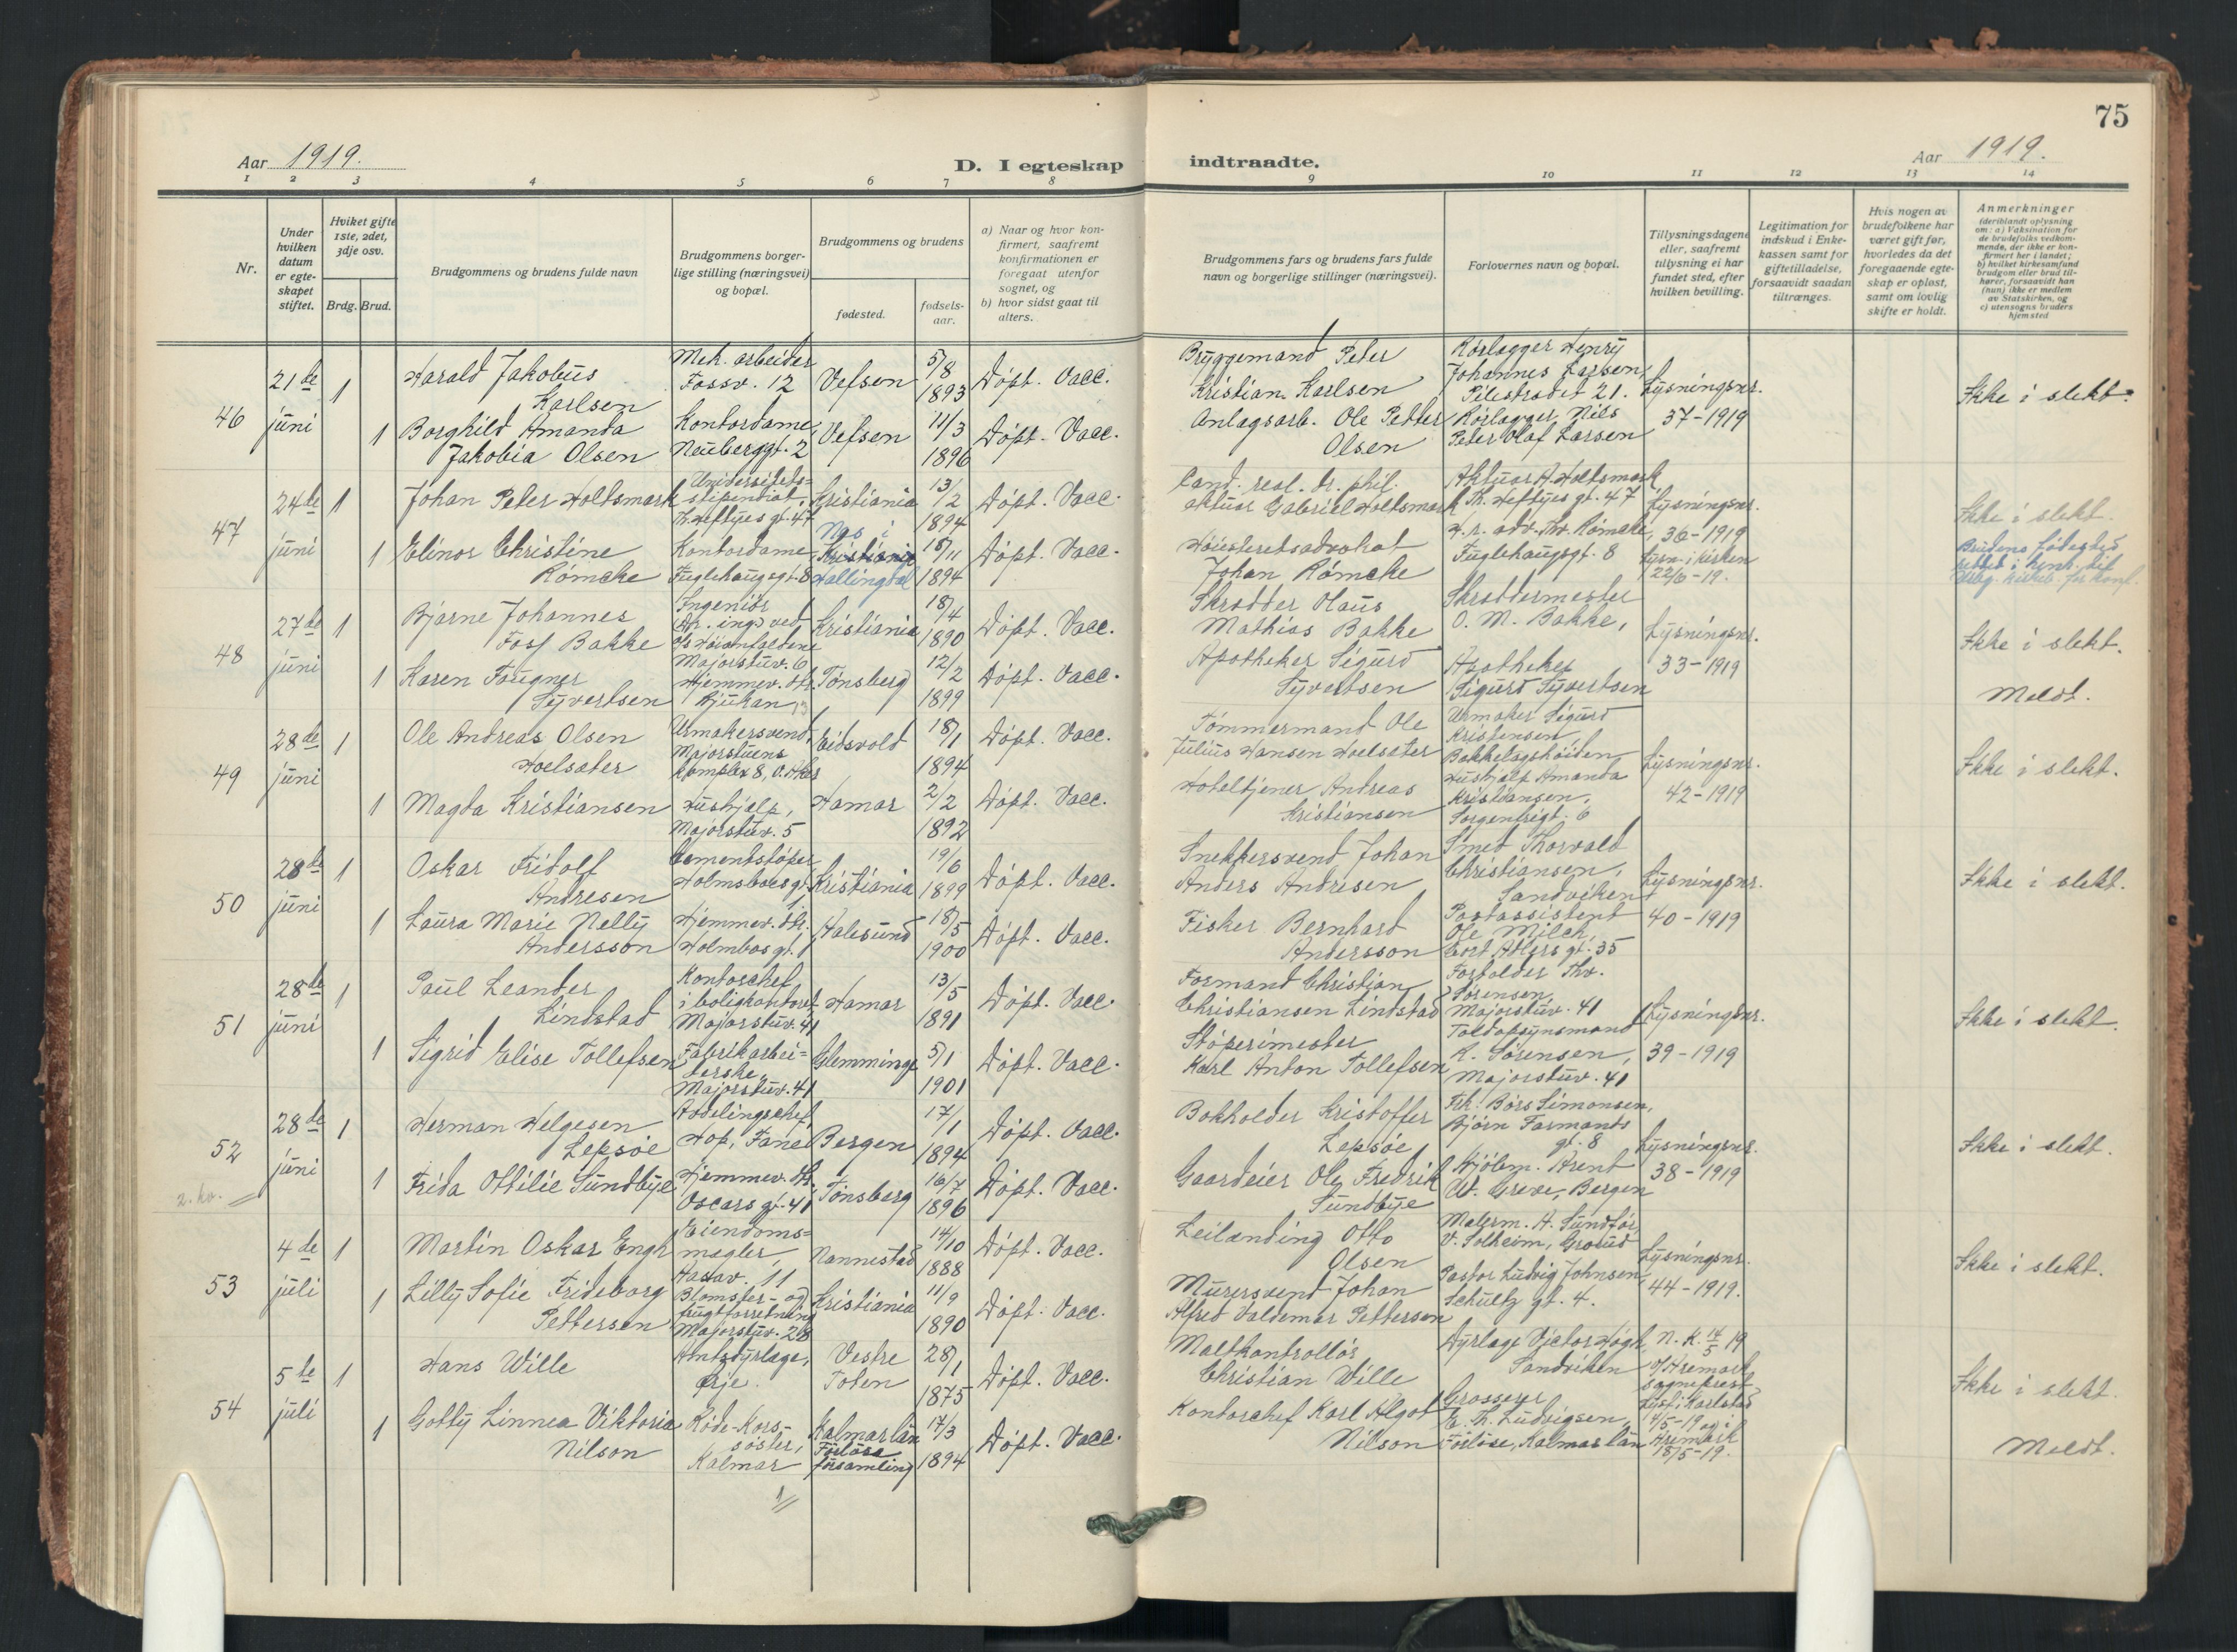 75
Aar 1919.
D. I egteskap
indtraadte.
Aar 1919.
1 2 3 4 5 6 7 8 9 10 11 12 13 14
Nr.
Under
hvilken
datum
er egte-
skapet
stiftet.
Hviket gifte
1ste, 2det,
3dje osv.
Brdg. Brud.
Brudgommens og brudens fulde navn
Brudgommens borger-
lige stilling (næringsvei)
og bopæl.
Brudgommens og brudens
fødested.
fødsels-
aar.
a) Naar og hvor kon-
firmert, saafremt
konfirmationen er
foregaat utenfor
sognet, og
b) hvor sidst gaat til
alters.
Brudgommens fars og brudens fars fulde
navn og borgerlige stillinger (næringsvei).
Forlovernes navn og bopæl.
Tillysningsdagene
eller, saafremt
tillysning ei har
fundet sted, efter
hvilken bevilling.
Legitimation for
indskud i Enke-
kassen samt for
giftetilladelse,
forsaavidt saadan
tiltrænges.
Hvis nogen av
brudefolkene har
været gift før,
hvorledes da det
foregaaende egte-
skap er opløst,
samt om lovlig
skifte er holdt.
Anmerkninger
(deriblandt oplysning
om: a) Vaksination for
de brudefolks vedkom-
mende, der ikke er kon-
firmert her i landet;
b) hvilket kirkesamfund
brudgom eller brud til-
hører, forsaavidt han
(hun) ikke er medlem
av Statskirken, og
c) utensogns bruders
hjemsted
46
21de
juni
1
Harald Jakobus
Karlsen
Mek. arbeider
Fossv. 12
Vefsen
5/8
1893
Døpt. Vacc.
Bryggemand Peter
Kristian Karlsen
Rørlægger Henry
Johannes Larsen,
Pilestrædet 21.
Lysningsnr.
37-1919
Ikke i slekt.
1
Borghild Amanda
Jakobia Olsen
Kontordame,
Neuberggt. 2
Vefsen
11/3
1896
Døpt. Vacc.
Anlægsarb. Ole Petter
Olsen
Rørlægger Nils
Peter Olaf Larsen
47
24de
juni
1
Johan Peter Holtsmark
Universitets-
stipendiat,
Th. Heftyes gt. 47
Kristiania
13/2
1894
Døpt. Vacc.
Cand. real. dr. phil.
aktuar Gabriel Holtsmark
Aktuar A. Holtsmark
Th. Heftyes gt. 47
Lysningsnr.
36-1919
Lysn. i kirken
22/6-19.
Ikke i slekt.
1
Elinor Christine
Rømcke
Kontordame,
Fuglehaugsgt. 8
Nes i
Kristiania
Hallingdal
18/11
1894
Døpt. Vacc.
Høiesteretsadvokat
Johan Rømcke
H. r. adv. Thv. Rømcke,
Fuglehaugsgt. 8
Brudens fødested
rettet i henh. til
48
27de
juni
1
Bjarne Johannes
Foss Bakke
Ingeniør
Majorstuv. 6
Kristiania
18/4
1890
Døpt. Vacc.
Skrædder Olaus
Mathias Bakke
Skræddermester
O. M. Bakke,
Lysningsnr.
33-1919
Ikke i slekt.
1
Karen Fougner
Syvertsen
Hjemmev. dtr.
Rjukan
Tønsberg
12/2
1899
Døpt. Vacc.
Apotheker Sigurd
Syvertsen
Apotheker
Sigurd Syvertsen
Meldt.
49
28de
juni
1
Ole Andreas Olsen
Hoelsæter
Urmakersvend,
Majorstuens
komplex 8, V. Aker
Eidsvold
18/1
1894
Døpt. Vacc.
Tømmermand Ole
Julius Hansen Hoelsæter
Urmaker Sigurd
Kristensen,
Bakkelagshøiden
Lysningsnr.
42-1919
Ikke i slekt.
1
Magda Kristiansen
Hushjælp,
Majorstuv. 5
Hamar
2/2
1892
Døpt. Vacc.
Hoteltjener Andreas
Kristiansen
Hushjælp Amanda
Kristiansen,
Sorgenfrigt. 6
50
28de
juni
1
Oskar Fridolf
Andresen
Cementstøper
Holmboes gt. 1
Kristiania
19/6
1899
Døpt. Vacc.
Snekkersvend Johan
Anders Andresen
Smed Thorvald
Christiansen,
Sandviken
Lysningsnr.
40-1919
Ikke i slekt.
1
Laura Marie Nelly
Andersson
Hjemmev. dtr.
Holmboes gt. 1
Aalesund
18/5
1900
Døpt. Vacc.
Fisker Bernhard
Andersson
Postassistent
Ole Milch,
Cort Adlers gt. 35
51
28de
juni
1
Paul Leander
Lindstad
Kontorchef
i boligkontoret,
Majorstuv. 41
Hamar
13/5
1891
Døpt. Vacc.
Formand Christian
Christiansen Lindstad
Forvalder Thv.
Sørensen,
Majorstuv. 41
Lysningsnr.
39-1919
Ikke i slekt.
1
Sigrid Elise Tollefsen
Fabrikarbei-
derske,
Majorstuv. 41
Glemminge
5/1
1901
Døpt. Vacc.
Støperimester
Karl Anton Tollefsen
Toldopsynsmand
K. Sørensen,
Majorstuv. 41
52
28de
juni
1
Herman Helgesen
Lepsøe
Avdelingschef,
Hop, Fane
Bergen
17/1
1894
Døpt. Vacc.
Bokholder Kristoffer
Lepsøe
Frk. Børs Simonsen,
Bjørn Farmands
gt. 8
Lysningsnr.
38-1919
Ikke i slekt.
2. kv.
1
Frida Ottilie Sundbye
Hjemmev. dtr.
Oscars gt. 41
Tønsberg
16/7
1896
Døpt. Vacc.
Gaardeier Ole Fredrik
Sundbye
Arent
W. Greve, Bergen
53
4de
juli
1
Martin Oskar Engh
Eiendoms-
mægler,
11
Nannestad
14/10
1888
Døpt. Vacc.
Leilænding Otto
Olsen
Malerm. H. Sundfør
V. Solheim, Grorud
Lysningsnr.
44-1919.
Ikke i slekt.
1
Lilly Sofie Frideborg
Pettersen
Blomster- og
frugtforretning
Majorstuv. 28
Kristiania
11/9
1890
Døpt. Vacc.
Murersvend Johan
Alfred Valdemar Pettersen
Pastor Ludvig Johnsen,
Schultz gt. 4.
54
5te
juli
1
Hans Wille
Amtsdyrlæge,
Ørje.
Vestre
Toten
28/1
1875
Døpt. Vacc.
Maltkontrollør
Christian Wille
Dyrlæge Victor Høgh,
Sandviken
N. K. 14/5 19
v/ Aremark
sogneprest
Lyst i Karlstad
4/5-19 og i
Aremark
18/5-19.
Ikke i slekt.
1
Gotty Linnea Viktoria
Nilson
Røde-Kors-
søster,
Kalmar
Kalmar län
Förlösa
församling
17/3
1894
Døpt. Vacc.
Kontorchef Karl Algot
Nilson
Grosserer
E. Th. Ludvigsen,
Förlösa, Kalmar län
Meldt.